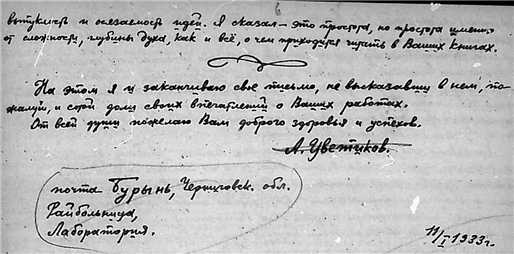 6
выпуклость и осязаемость идей. Я сказал – это простота, но простота именно
от сложности, глубины духа, как и всё, о чем приходится читать в Ваших книгах.
На этом я и заканчиваю свое письмо, не высказавши в нем, по-
жалуй, и сотой доли своих впечатлений о Ваших работах.
От всей души пожелаю Вам доброго здоровья и успехов.
А. Цветиков.
почта Бурынь, Черниговск. обл.
Райбольница,
Лаборатория.
11/I 1933г.